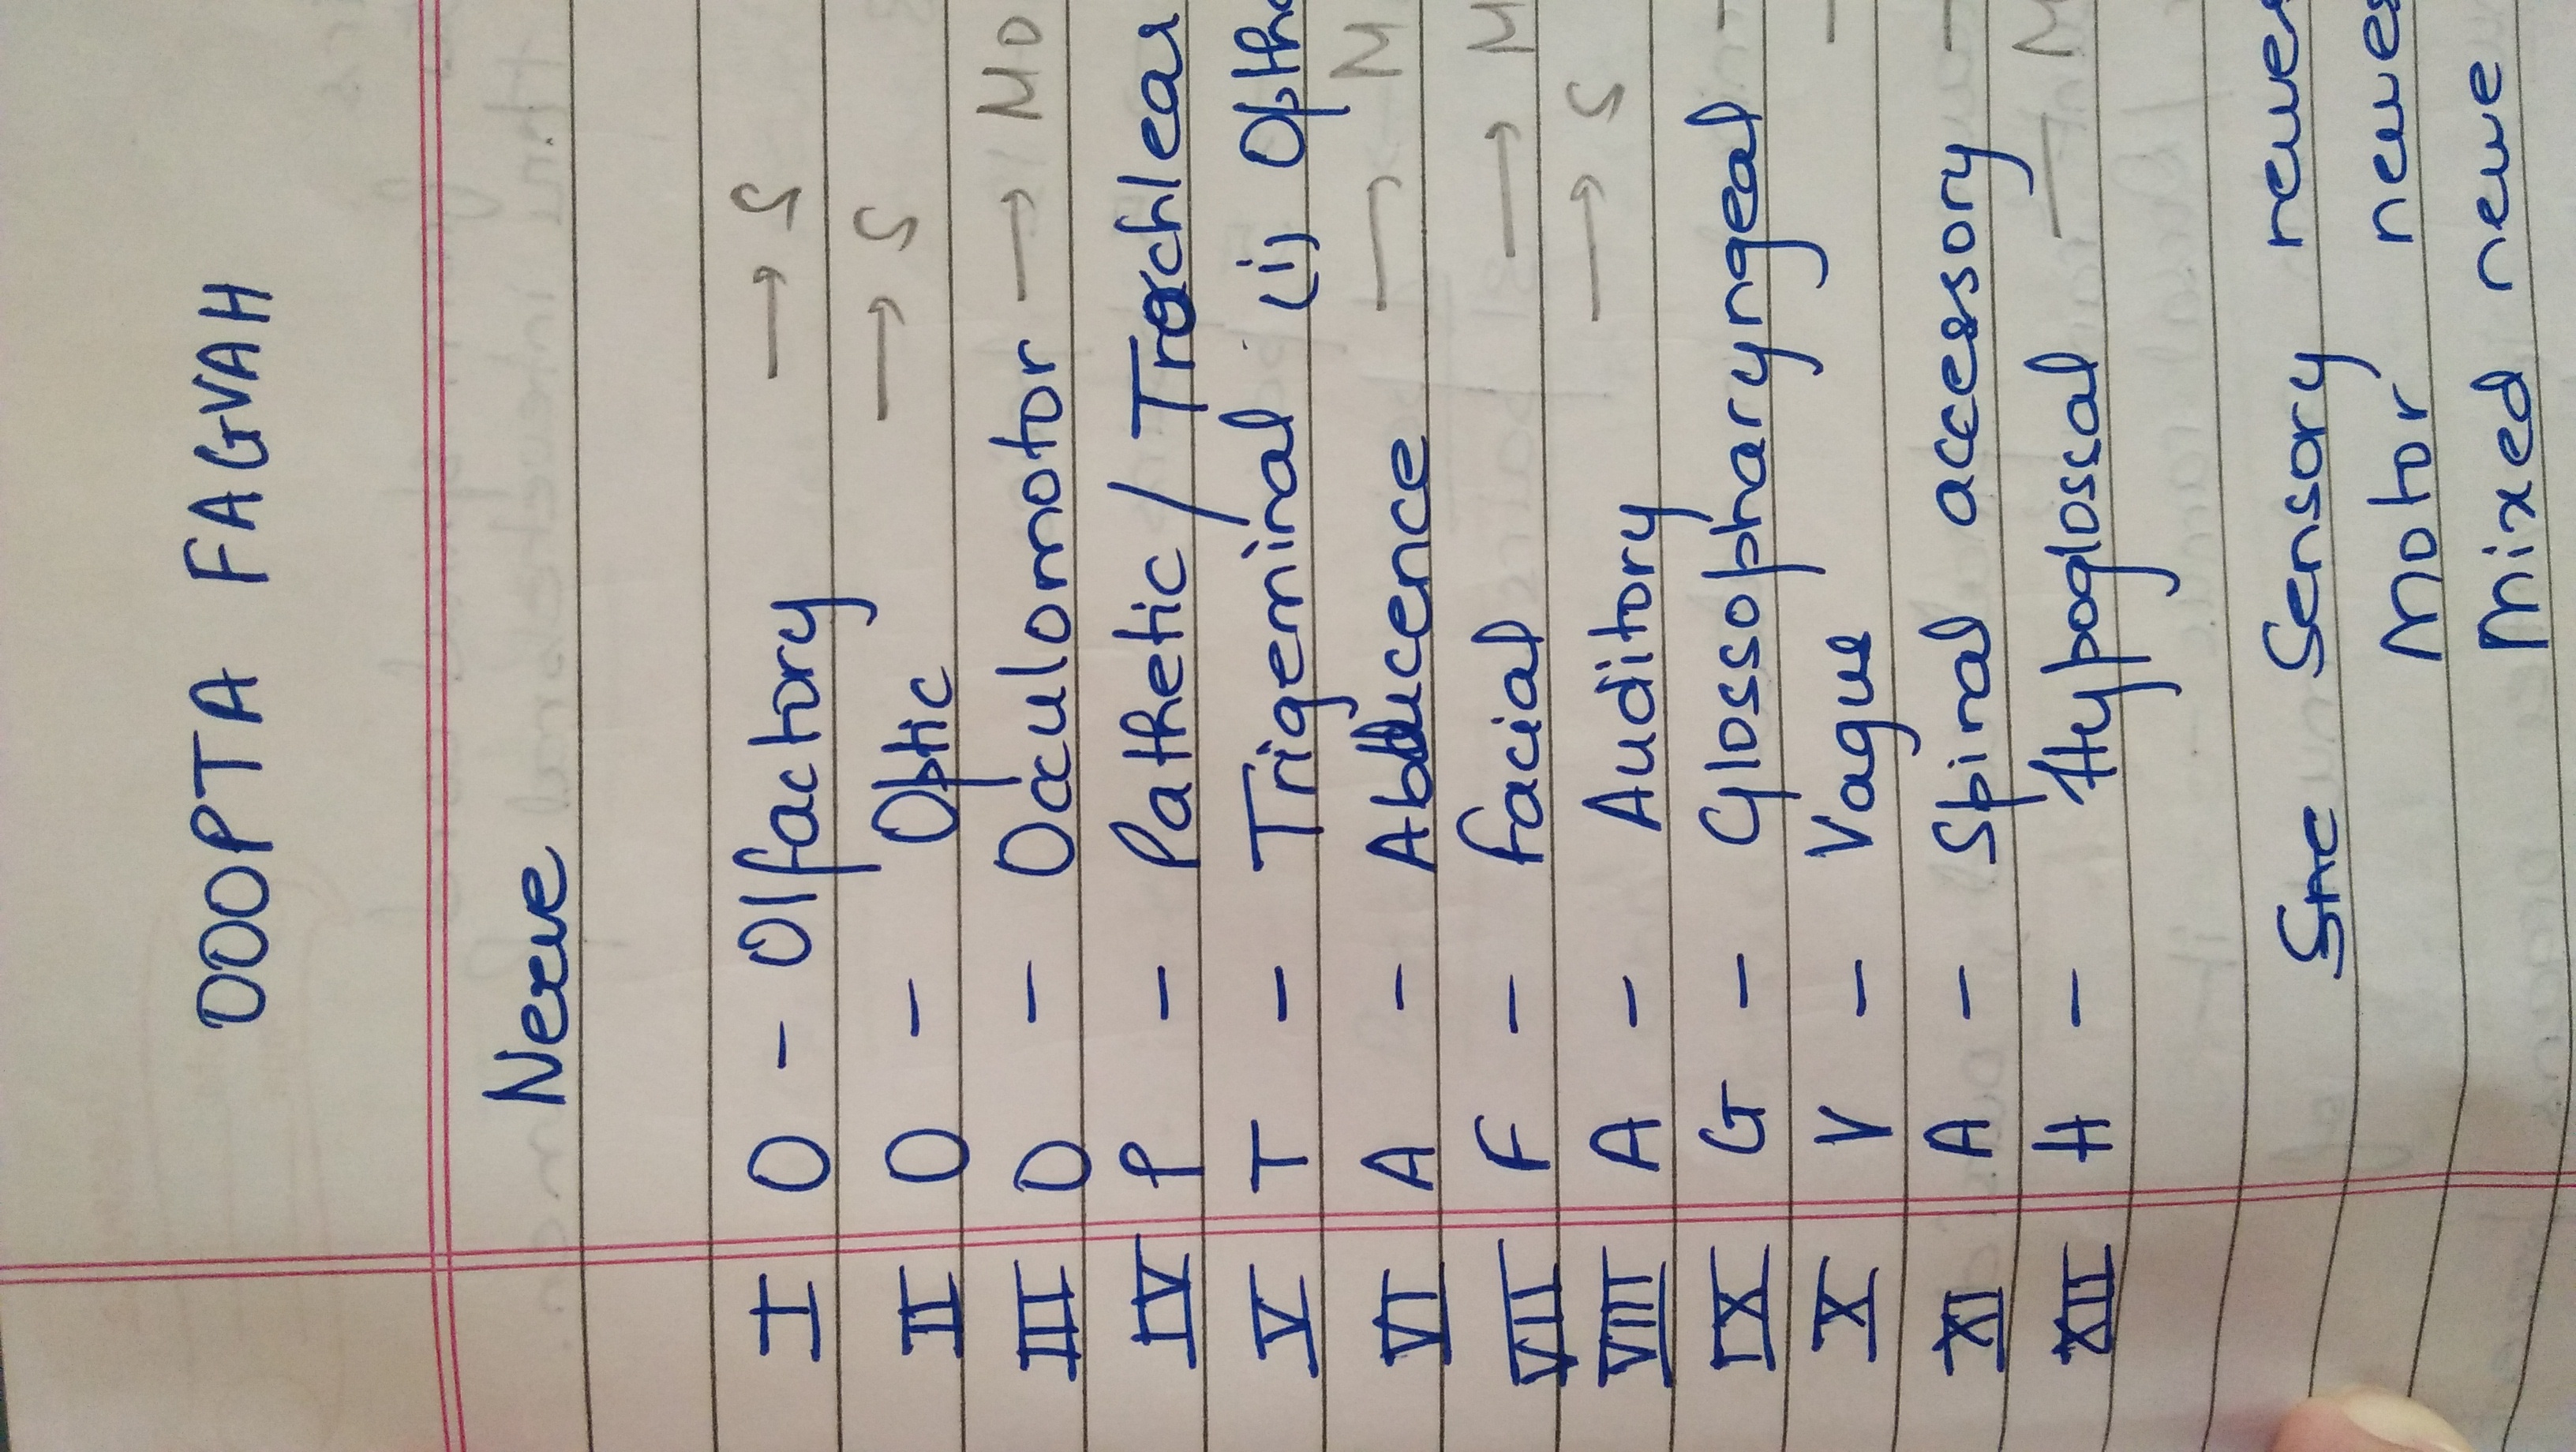 OOOPTA FAGVAH
Nerve
I O - Olfactory → S
II O - Optic → S
III O - Occulomotor → Mo
IV P - Pathetic / Trochlear
V T - Trigeminal (i) Optha
VI A - Abducence → M
VII F - facial → M
VIII A - Auditory → S
IX G - Glossopharyngeal
X V - Vague
XI A - Spinal accessory
XII H - Hypoglossal — M
Sensory nerves
Motor nerves
Mixed nerve